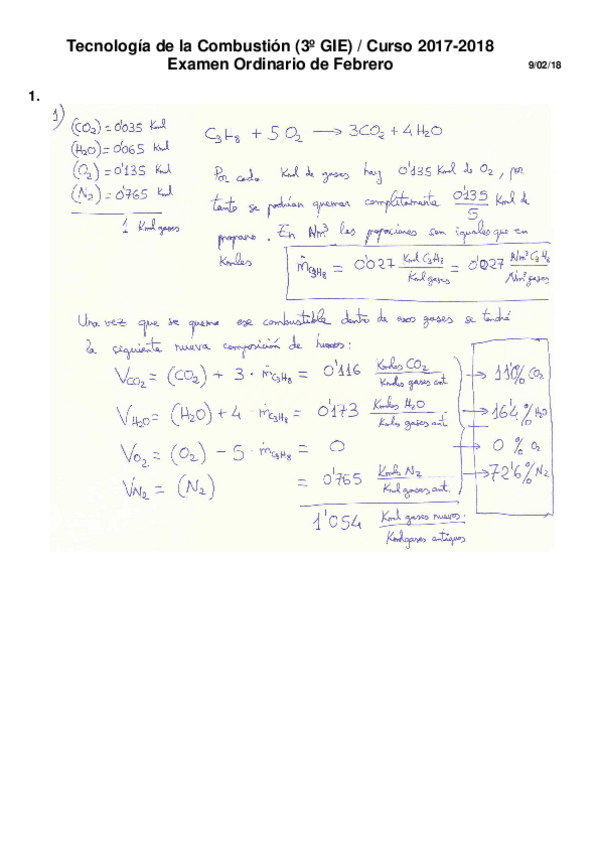 Tecnología de la Combustión (3º GIE) / Curso 2017-2018
Examen Ordinario de Febrero
9/02/18
1.
1)
(CO2) = 0'035 Kmol
(H2O) = 0'065 Kmol
(O2) = 0'135 Kmol
(N2) = 0'765 Kmol
1 Kmol gases
C3H8 + 5 O2 → 3CO2 + 4H2O
Por cada Kmol de gases hay 0'135 Kmol de O2, por
tanto se podrían quemar completamente 0'135/5 Kmol de
propano. En Nm³ las proporciones son iguales que en
Kmoles
ṁC3H8 = 0'027 Kmol C3H8/Kmol gases = 0'027 Nm³ C3H8/Nm³ gases
Una vez que se queme ese combustible dentro de esos gases se tendrá
la siguiente nueva composición de humos:
VCO2 = (CO2) + 3 · ṁC3H8 = 0'116 Kmoles CO2/Kmoles gases ant. → 11'0% CO2
VH2O = (H2O) + 4 · ṁC3H8 = 0'173 Kmoles H2O/Kmoles gases ant. → 16'4% H2O
VO2 = (O2) - 5 · ṁC3H8 = 0 → 0 % O2
VN2 = (N2) = 0'765 Kmoles N2/Kmol gases ant. → 72'6% N2
1'054 Kmol gases nuevos/Kmol gases antiguos